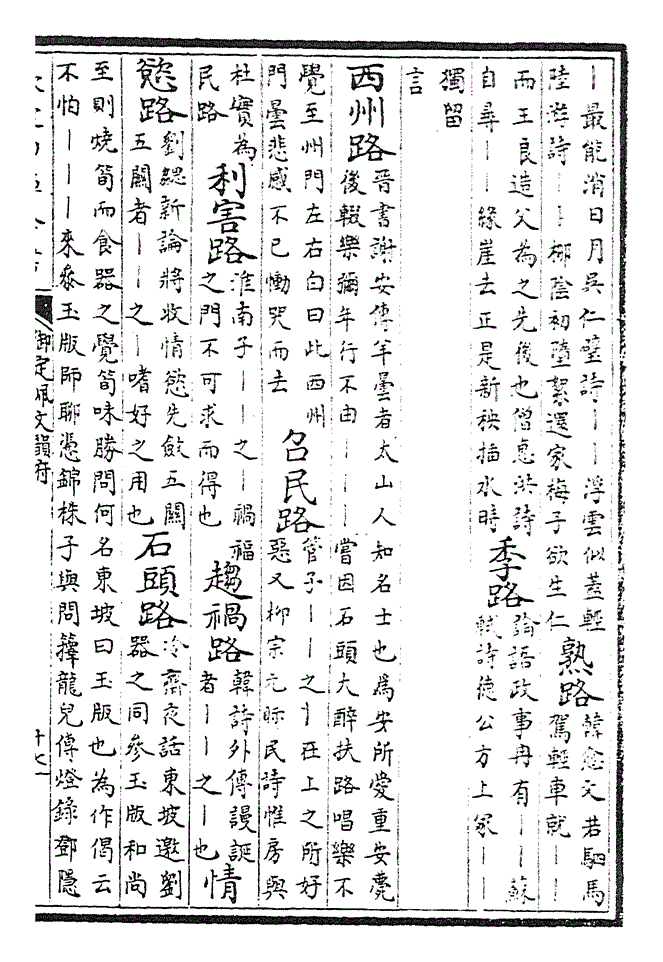 ｜最能消日月吳仁璧詩｜｜浮雲似蓋輕
陸游詩｜｜柳陰初墮絮還家梅子欲生仁
熟路
韓愈文若駟馬
駕輕車就｜｜
而王良造父為之先後也僧惠洪詩
自尋｜｜緣崖去正是新秧插水時
季路
論語政事冉有｜｜蘇
軾詩德公方上冢｜｜
獨留
言
西州路
晉書謝安傳羊曇者太山人知名士也為安所愛重安薨
後輟樂彌年行不由｜｜｜嘗因石頭大醉扶路唱樂不
覺至州門左右白曰此西州
門曇悲感不已慟哭而去
召民路
管子｜｜之｜在上之所好
惡又柳宗元眎民詩惟房與
杜實為
民路
利害路
淮南子｜｜之｜禍福
之門不可求而得也
趨禍路
韓詩外傳謾誕
者｜｜之｜也
情
慾路
劉勰新論將收情慾先斂五關
五關者｜｜之｜嗜好之用也
石頭路
冷齋夜話東坡邀劉
器之同參玉版和尚
至則燒筍而食器之覺筍味勝問何名東坡曰玉版也為作偈云
不怕｜｜｜來參玉版師聊憑錦株子與問籜龍兒傳燈錄鄧隱
御定佩文韻府